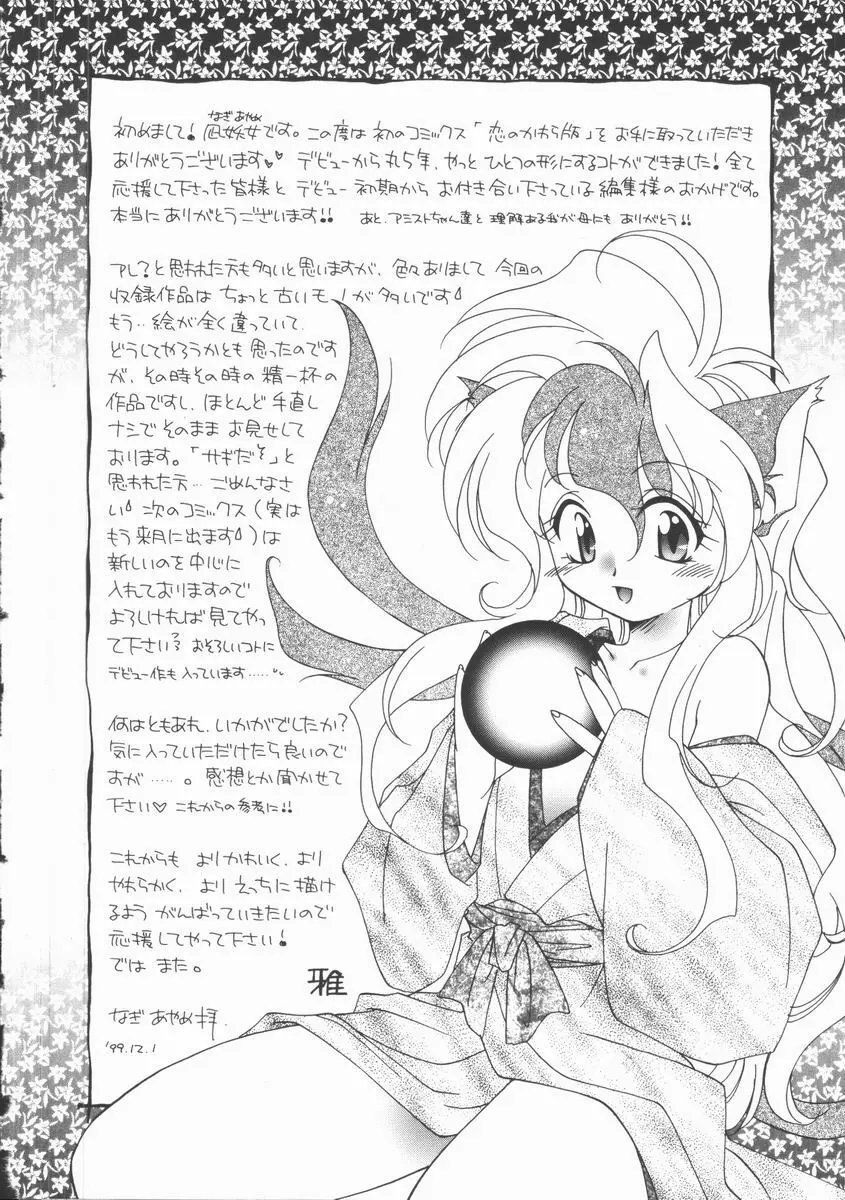 初めまして!凪妖女です。この度は初のコミックス「恋のかわら版」をお手に取っていただき
なぎあやめ
ありがとうございます♥♥ デビューから丸5年、やっとひとつの形にするコトができました!全て
応援して下さった皆様とデビュー初期からお付き合い下さっている編集様のおかげです。
本当にありがとうございます!! あと、アミストちゃん達と理解ある我が母にもありがとう!!
アレ?と思われた方も多いと思いますが、色々ありまして今回の
収録作品はちょっと古いモノが多いです
もう‥絵が全く違っていて、
どうしてやろうかとも思ったのです
が、その時その時の精一杯の
作品ですし、ほとんど手直し
ナシでそのままお見せして
おります。「サギだぞ」と
思われた方…ごめんなさ
い 次のコミックス(実は
もう来月に出ます)は
新しいのを中心に
入れておりますので
よろしければ見てやっ
て下さい? おそろしいコトに
デビュー作も入っています……
何はともあれ、いかがでしたか?
気に入っていただけたら良いので
すが……。感想とか聞かせて
下さい♡ これからの参考に!!
これからも よりかわいく、より
やわらかく、よりえっちに描け
るよう がんばっていきたいので
応援してやって下さい!
では また。
雅
なぎ あやめ 拝.
'99.12.1